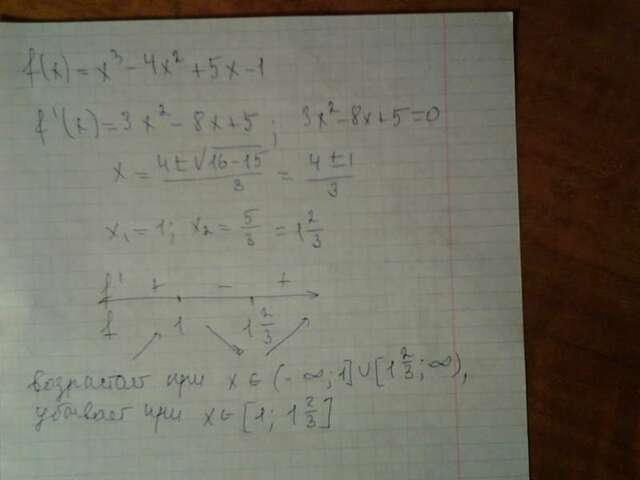 f(x) = x³ - 4x² + 5x - 1
f'(x) = 3x² - 8x + 5 ; 3x² - 8x + 5 = 0
x = (4 ± √(16 - 15))/3 = (4 ± 1)/3
x₁ = 1; x₂ = 5/3 = 1 2/3
f' + - +
f 1 1 2/3
возрастает при x ∈ (- ∞; 1] ∪ [1 2/3; ∞),
убывает при x ∈ [1; 1 2/3]